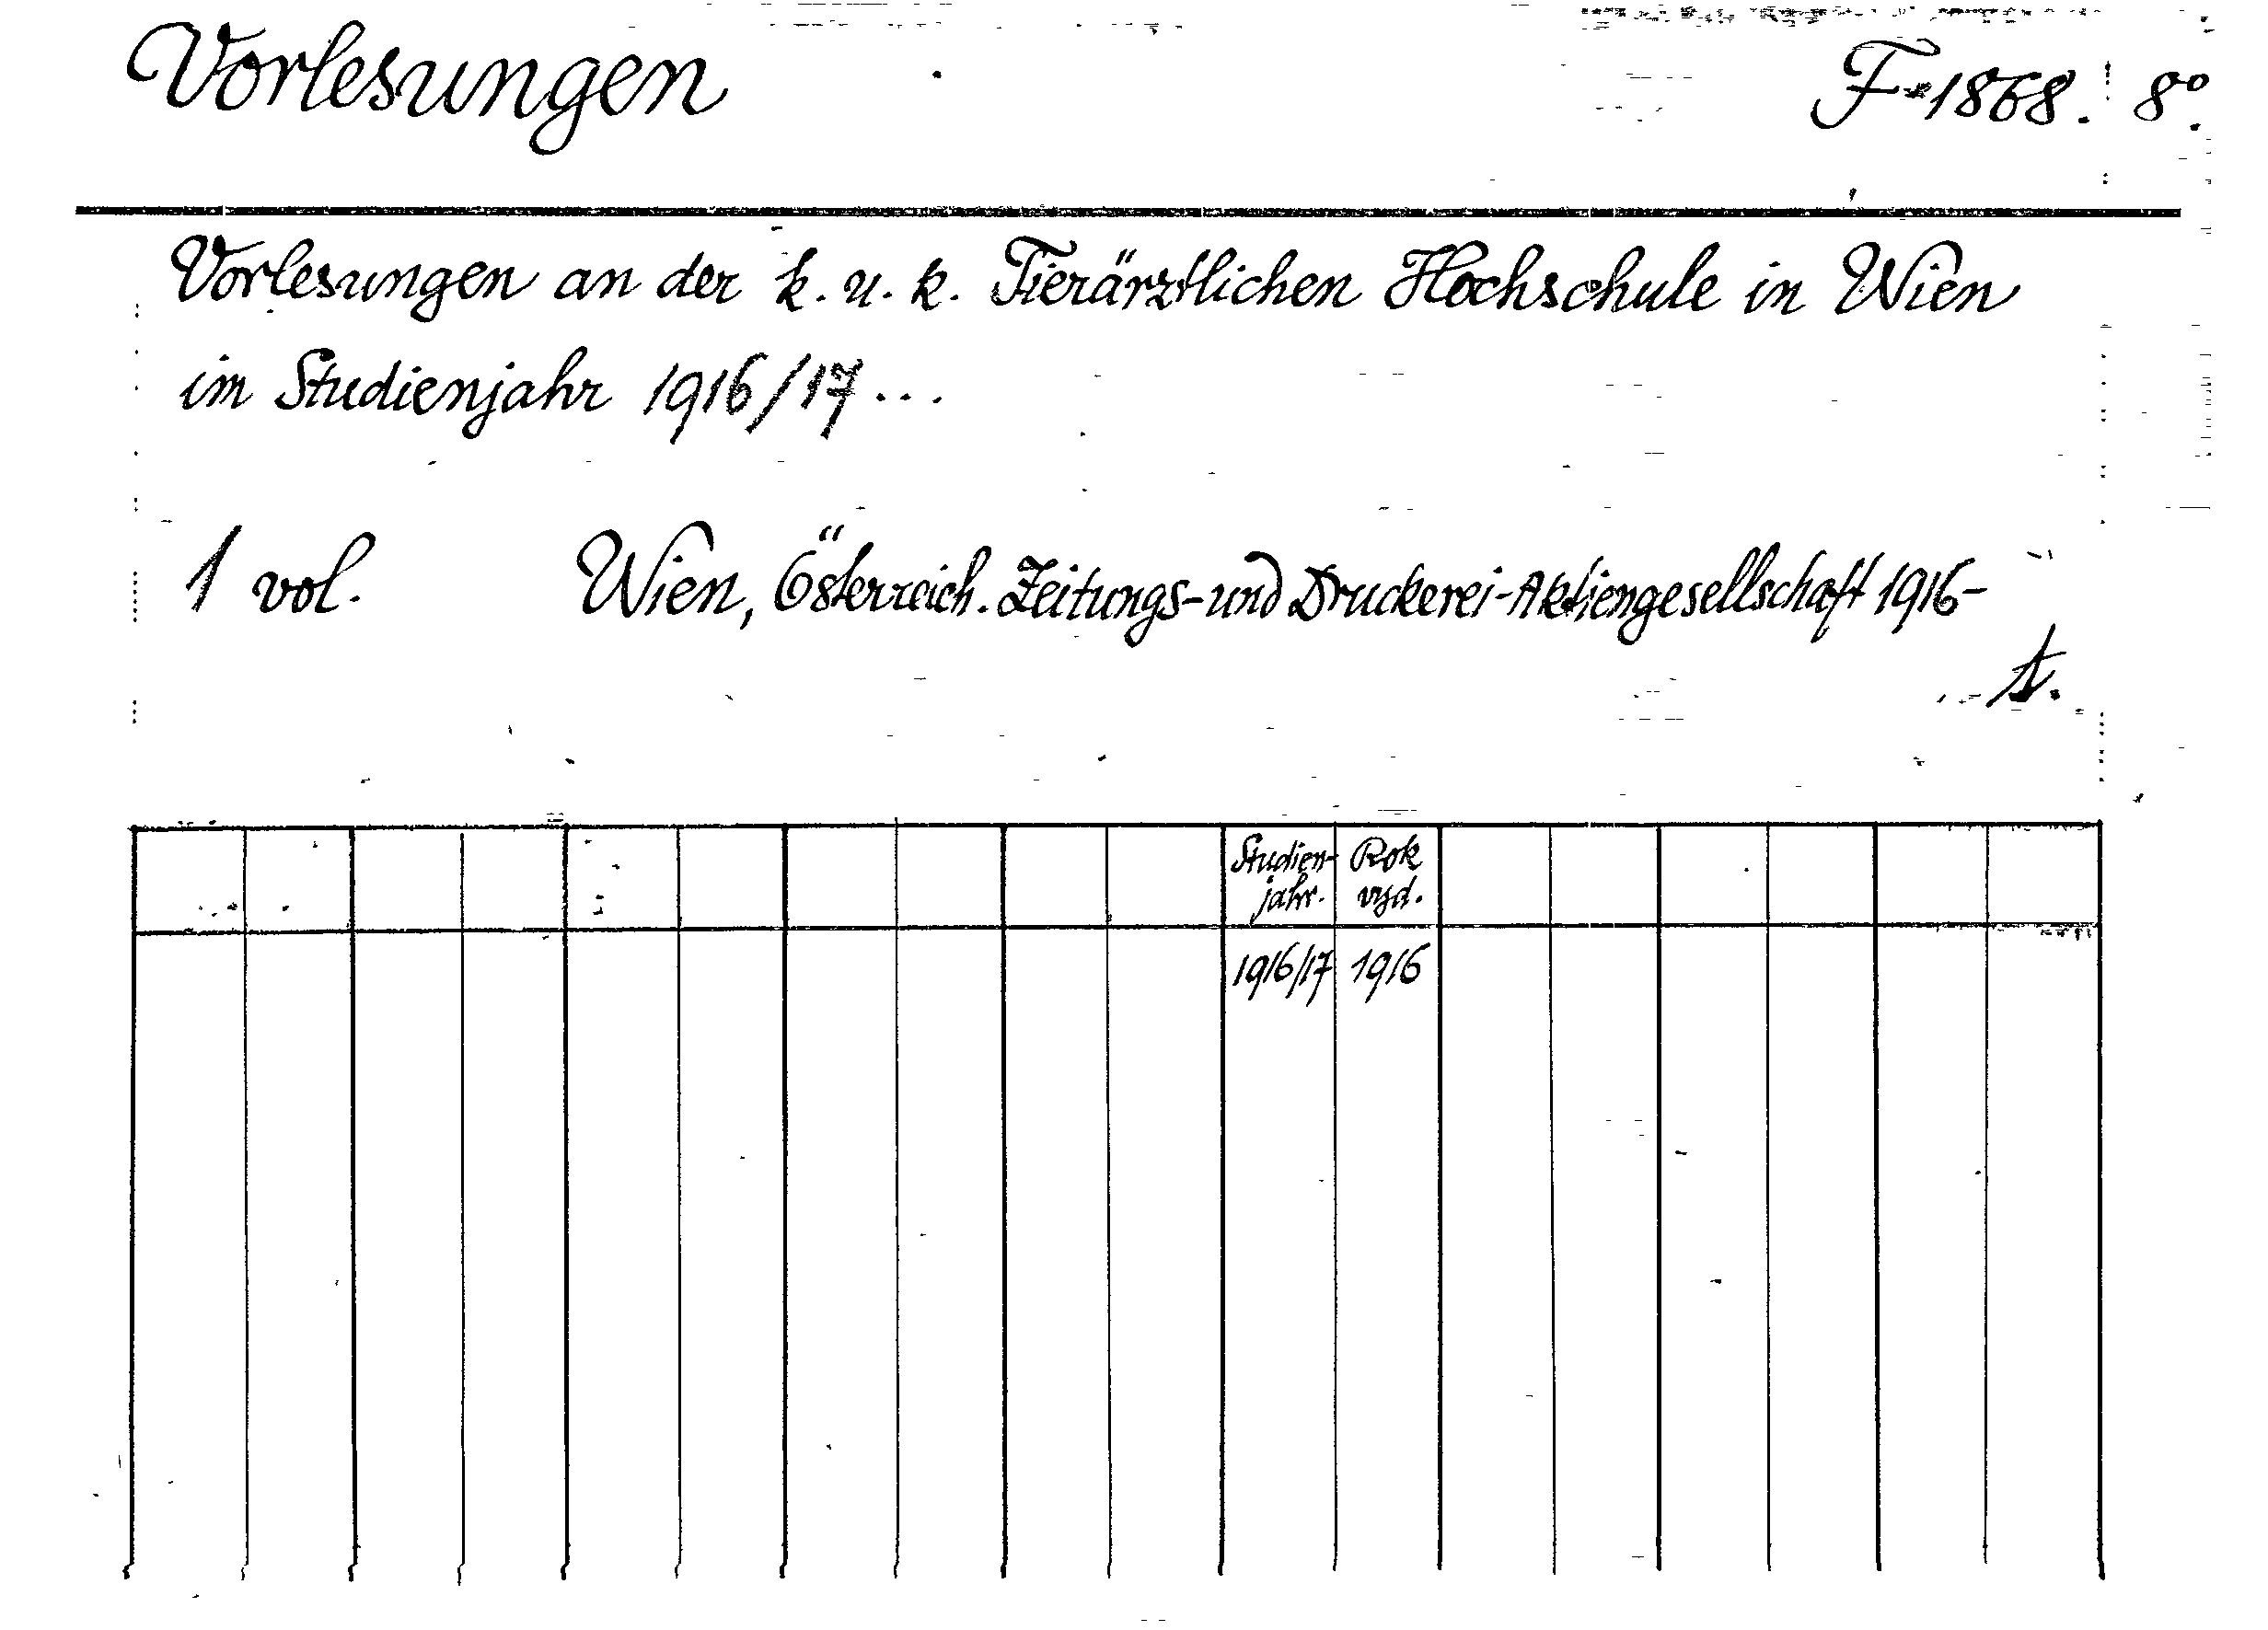 Vorlesungen F-1868. 8°.
Vorlesungen an der k. u. k. Tierärztlichen Hochschule in Wien
im Studienjahr 1916/17...
1 vol. Wien, Österreich. Zeitungs- und Druckerei-Aktiengesellschaft 1916-
Studien- Rok
jahr. vyd.
1916/17 1916